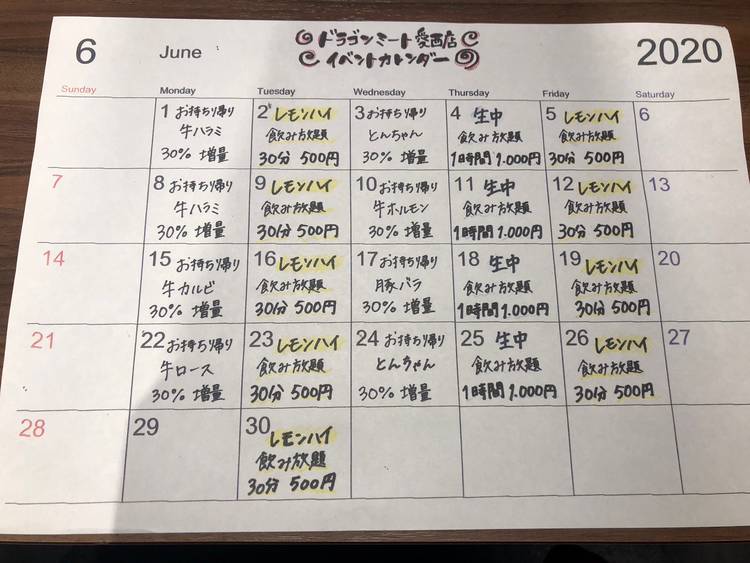 6 June ドラゴンミート愛西店 2020
イベントカレンダー
Sunday Monday Tuesday Wednesday Thursday Friday Saturday
1 お持ち帰り 2 レモンハイ 3 お持ち帰り 4 生中 5 レモンハイ 6
牛ハラミ 飲み放題 とんちゃん 飲み放題 飲み放題
30% 増量 30分 500円 30% 増量 1時間 1.000円 30分 500円
7 8 お持ち帰り 9 レモンハイ 10 お持ち帰り 11 生中 12 レモンハイ 13
牛ハラミ 飲み放題 牛ホルモン 飲み放題 飲み放題
30% 増量 30分 500円 30% 増量 1時間 1.000円 30分 500円
14 15 お持ち帰り 16 レモンハイ 17 お持ち帰り 18 生中 19 レモンハイ 20
牛カルビ 飲み放題 豚バラ 飲み放題 飲み放題
30% 増量 30分 500円 30% 増量 1時間 1.000円 30分 500円
21 22 お持ち帰り 23 レモンハイ 24 お持ち帰り 25 生中 26 レモンハイ 27
牛ロース 飲み放題 とんちゃん 飲み放題 飲み放題
30% 増量 30分 500円 30% 増量 1時間 1.000円 30分 500円
28 29 30 レモンハイ
飲み放題
30分 500円